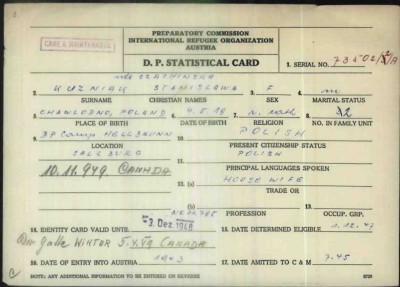 PREPARATORY COMMISSION
INTERNATIONAL REFUGEE ORGANIZATION
AUSTRIA
CARE & MAINTENANCE
D. P. STATISTICAL CARD
1. SERIAL NO.
2. KUZNIAK STANISLAWA 3. F 4. m
SURNAME CHRISTIAN NAMES SEX MARITAL STATUS
5. POLAND 6. 4.5.19 7. R. Kath 8. 2
PLACE OF BIRTH DATE OF BIRTH RELIGION NO. IN FAMILY UNIT
9. DP Camp HELLBRUNN 10. POLISH
LOCATION PRESENT CITIZENSHIP STATUS
SALZBURG 11. POLISH
10. 11. 949 CANADA PRINCIPAL LANGUAGES SPOKEN
12. (a) HOUSE WIFE
TRADE OR
13. VALID UNTIL (b)
3. Dez. 1948 PROFESSION OCCUP. GRP.
WIKTOR 5.4.49 CANADA 16. 1.12.47
DATE DETERMINED ELIGIBLE
14. 1943 17. 7.45
DATE OF ENTRY INTO AUSTRIA DATE AMITTED TO C & M
NOTE: ANY ADDITIONAL INFORMATION TO BE ENTERED ON REVERSE